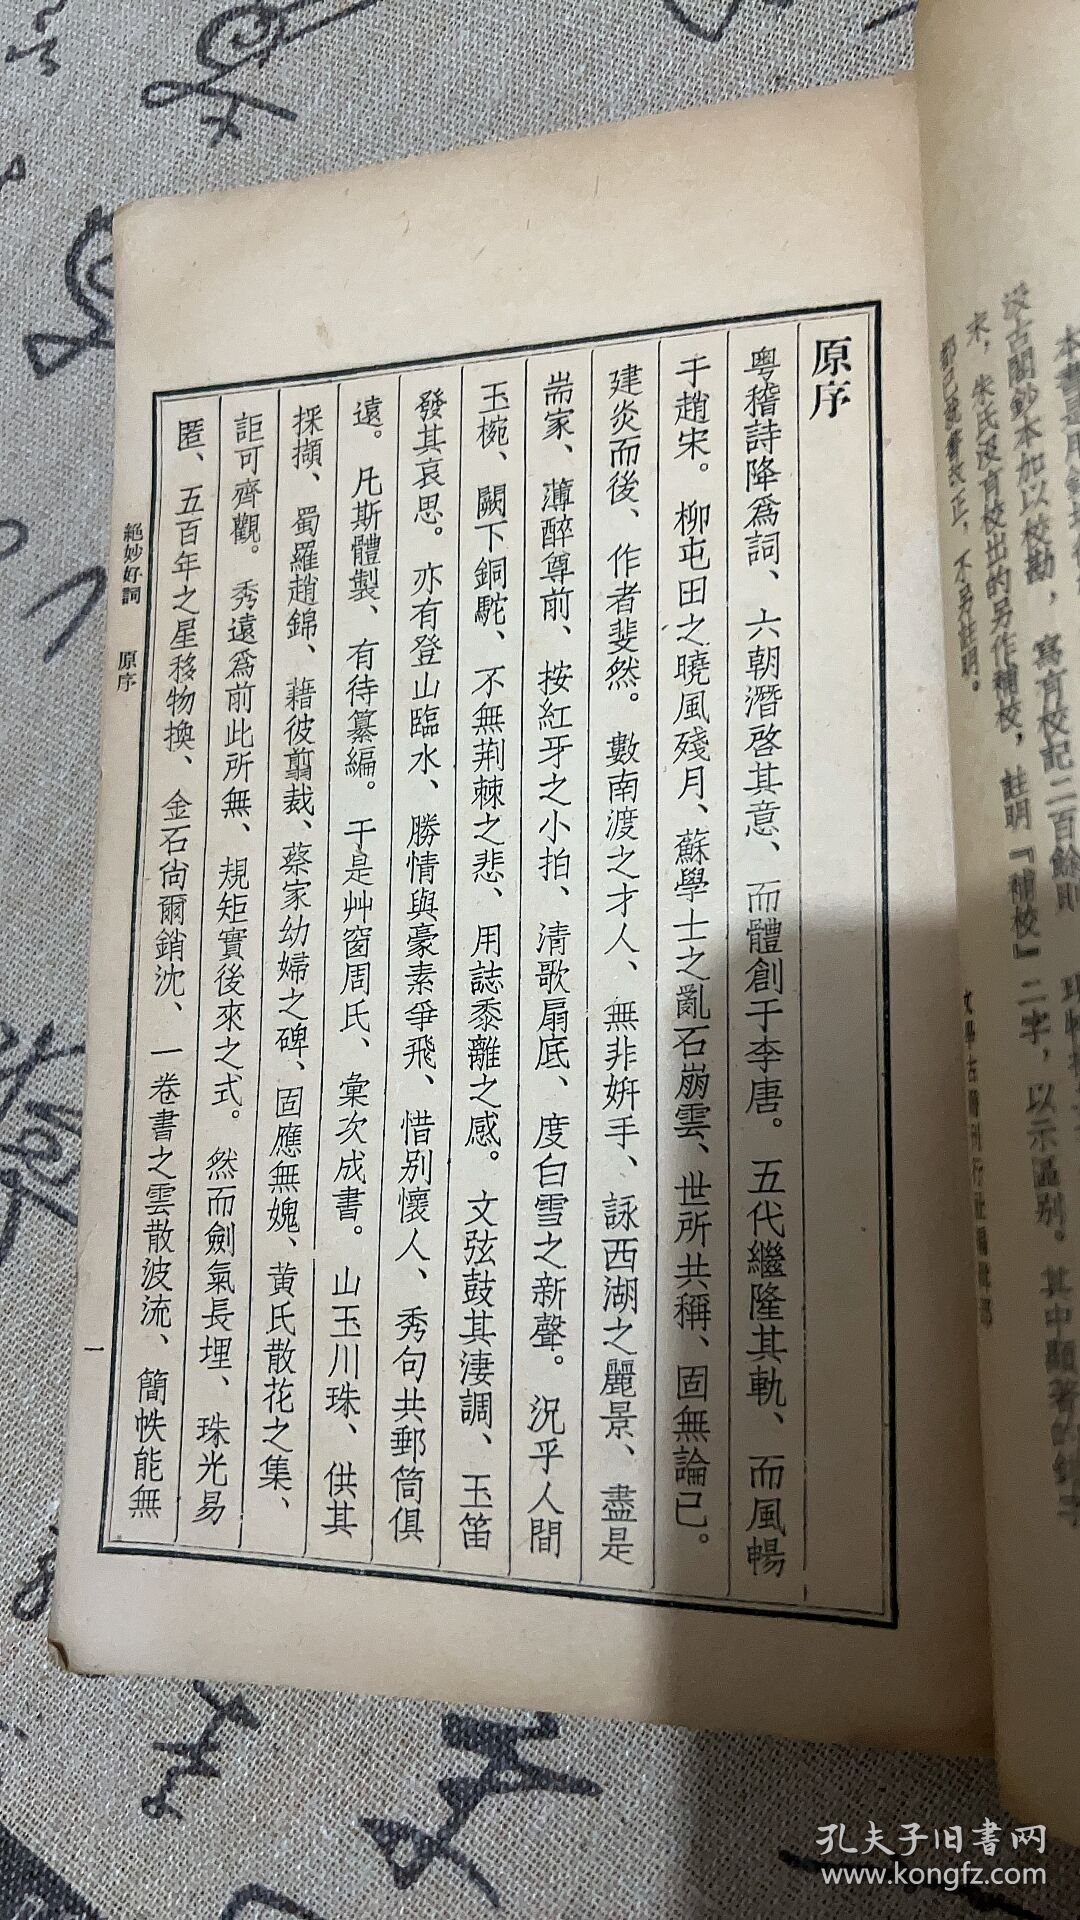 原序
粤稽詩降爲詞、六朝潛啓其意、而體創于李唐。五代繼隆其軌、而風暢
于趙宋。柳屯田之曉風殘月、蘇學士之亂石崩雲、世所共稱、固無論已。
建炎而後、作者斐然。數南渡之才人、無非妍手、詠西湖之麗景、盡是
耑家、薄醉尊前、按紅牙之小拍、清歌扇底、度白雪之新聲。況乎人間
玉椀、闕下銅駝、不無荆棘之悲、用誌黍離之感。文弦鼓其淒調、玉笛
發其哀思。亦有登山臨水、勝情與豪素爭飛、惜别懷人、秀句共郵筒俱
遠。凡斯體製、有待纂編。于是艸窗周氏、彙次成書。山玉川珠、供其
採擷、蜀羅趙錦、藉彼翦裁、蔡家幼婦之碑、固應無媿、黄氏散花之集、
詎可齊觀。秀遠爲前此所無、規矩實後來之式。然而劍氣長埋、珠光易
匿、五百年之星移物換、金石尙爾銷沈、一卷書之雲散波流、簡帙能無
絶妙好詞 原序
一
汲古閣鈔本加以校勘，寫有校記二百餘則
宋，朱氏没有校出的另作補校，註明『補校』二字，以示區别。其中顯著的錯字
都已逕行改正，不另註明。
文學古籍刊行社編輯部
孔夫子旧書网
www.kongfz.com